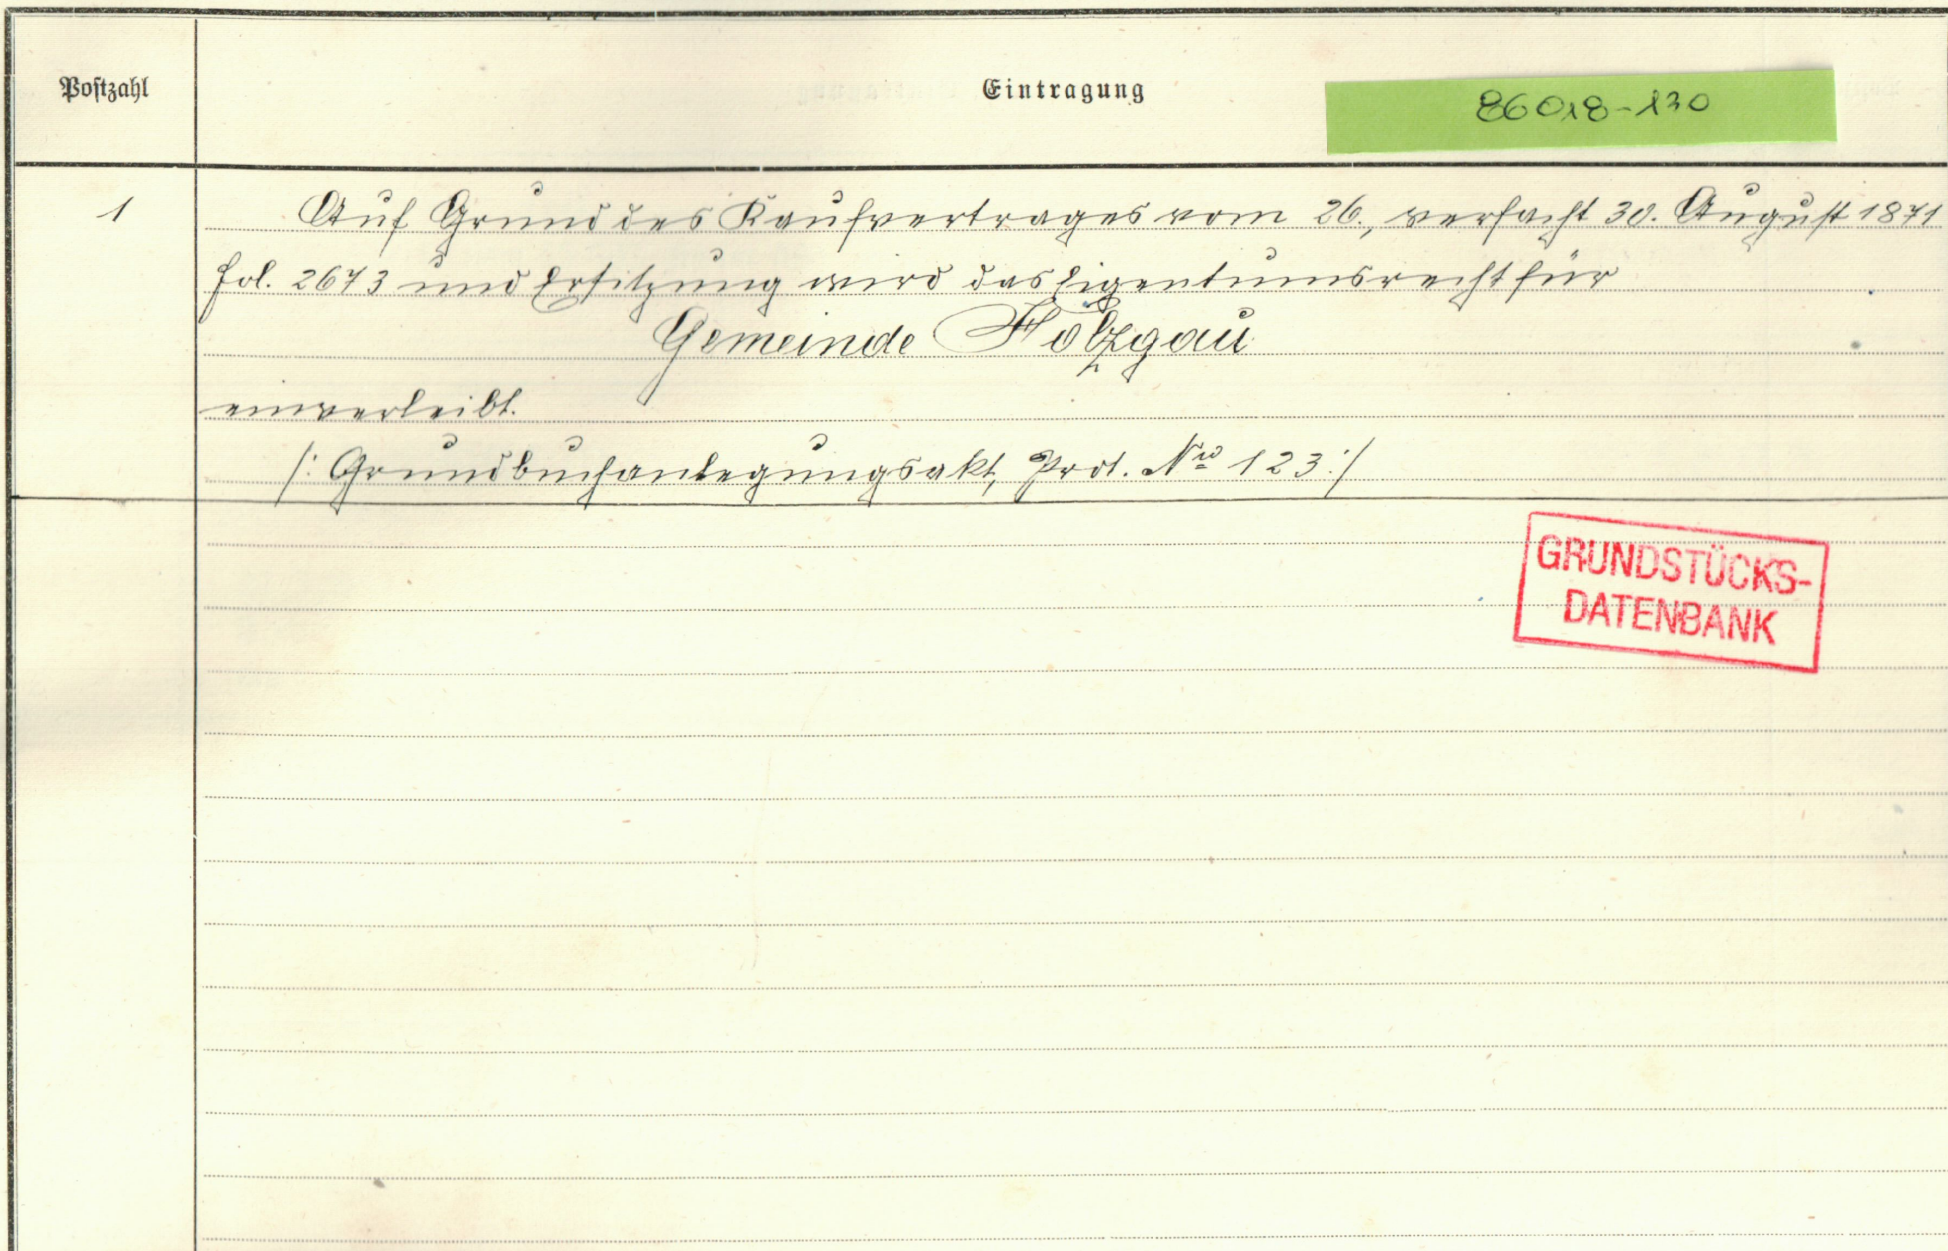 Postzahl
Eintragung
86018-130
1
Auf Grund des Kaufvertrages vom 26., verfacht 30. August 1871
fol. 2673 und Ersitzung wird das Eigentumsrecht für
Gemeinde Holzgau
einverleibt.
/: Grundbuchanlegungsakt, Prot. Nro 123 :/
GRUNDSTÜCKS-
DATENBANK